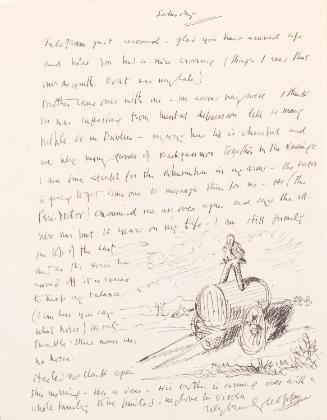 Saturday
Telegram just received – glad you have arrived safe
and hope you had a nice crossing (though I read that
one Weymouth boat was very late)
Brother came over with me – he seems very well – I think
he was suffering from mental depression like so many
people do in Dublin – anyway here he is cheerful and
we play many games of Backgammon together in the evenings.
I am fine except for the rheumatism in my arms – the doctor
is going to get some one to massage them for me – He (the
Paris doctor) examined me all over again and says the
has put 10 years on my life. I am still firmly
on top of the cart
and as the horse has
moved off it is easier
to keep my balance.
(I can hear you say
what horse) its only
trouble – there never was
no horse.
this morning – His brother is coming over with a
whole family to be painted – my love to